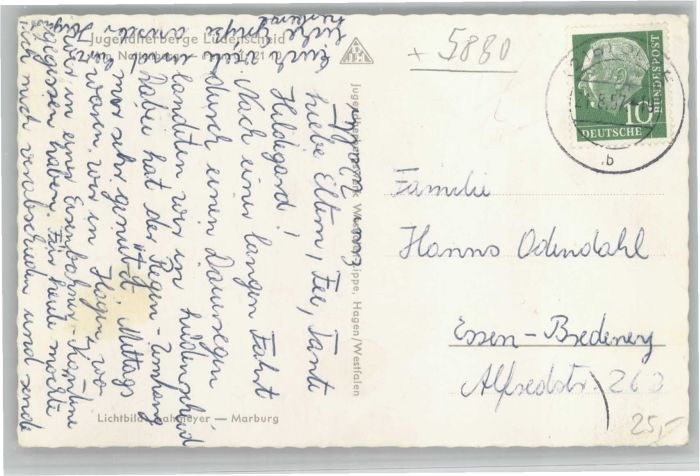 Jugendherberge Lüdenscheid
+ 5880
DEUTSCHE
BUNDESPOST
10
.b
Liebe Eltern, Fee, Tante
Hildegard!
Nach einer langen Fahrt
durch einen Dauerregen
landeten wir in Lüdenscheid
Dabei hat der Regen-Umhang
mir sehr genützt. Mittags
waren wir in Hagen, wo
wir in einer Eisenbahner-Kantine
gegessen haben. Für heute möchte
ich mich verabschieden und sende
Familie
Hanns Odendahl
Essen-Bredeney
Alfredstr. 260
25,-
Hagen/Westfalen
Lichtbild — Marburg